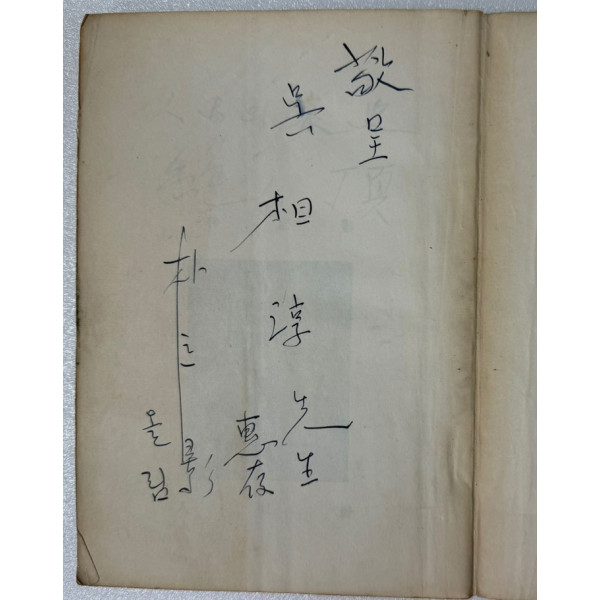 敬呈
吳相淳先生
惠存
朴 影
올림